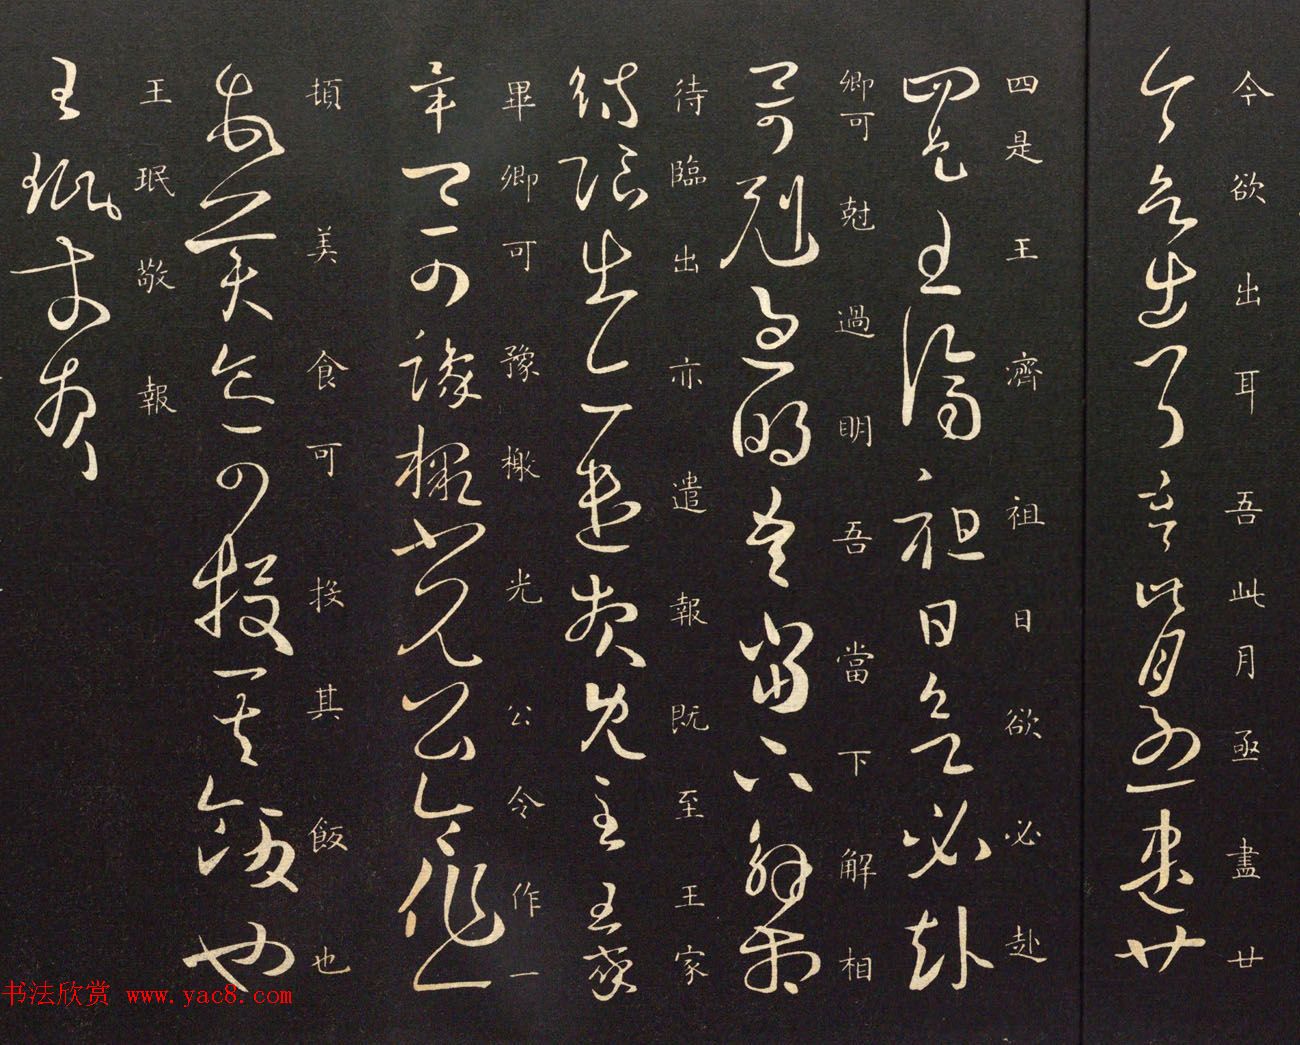 今欲出耳吾此月亟盡廿
四是王濟祖日欲必赴
卿可尅過明吾當下解相
待臨出亦遣報既至王家
畢卿可豫檄光公令作一
頓美食可投其飯也
王珉敬報
书法欣赏 www.yac8.com